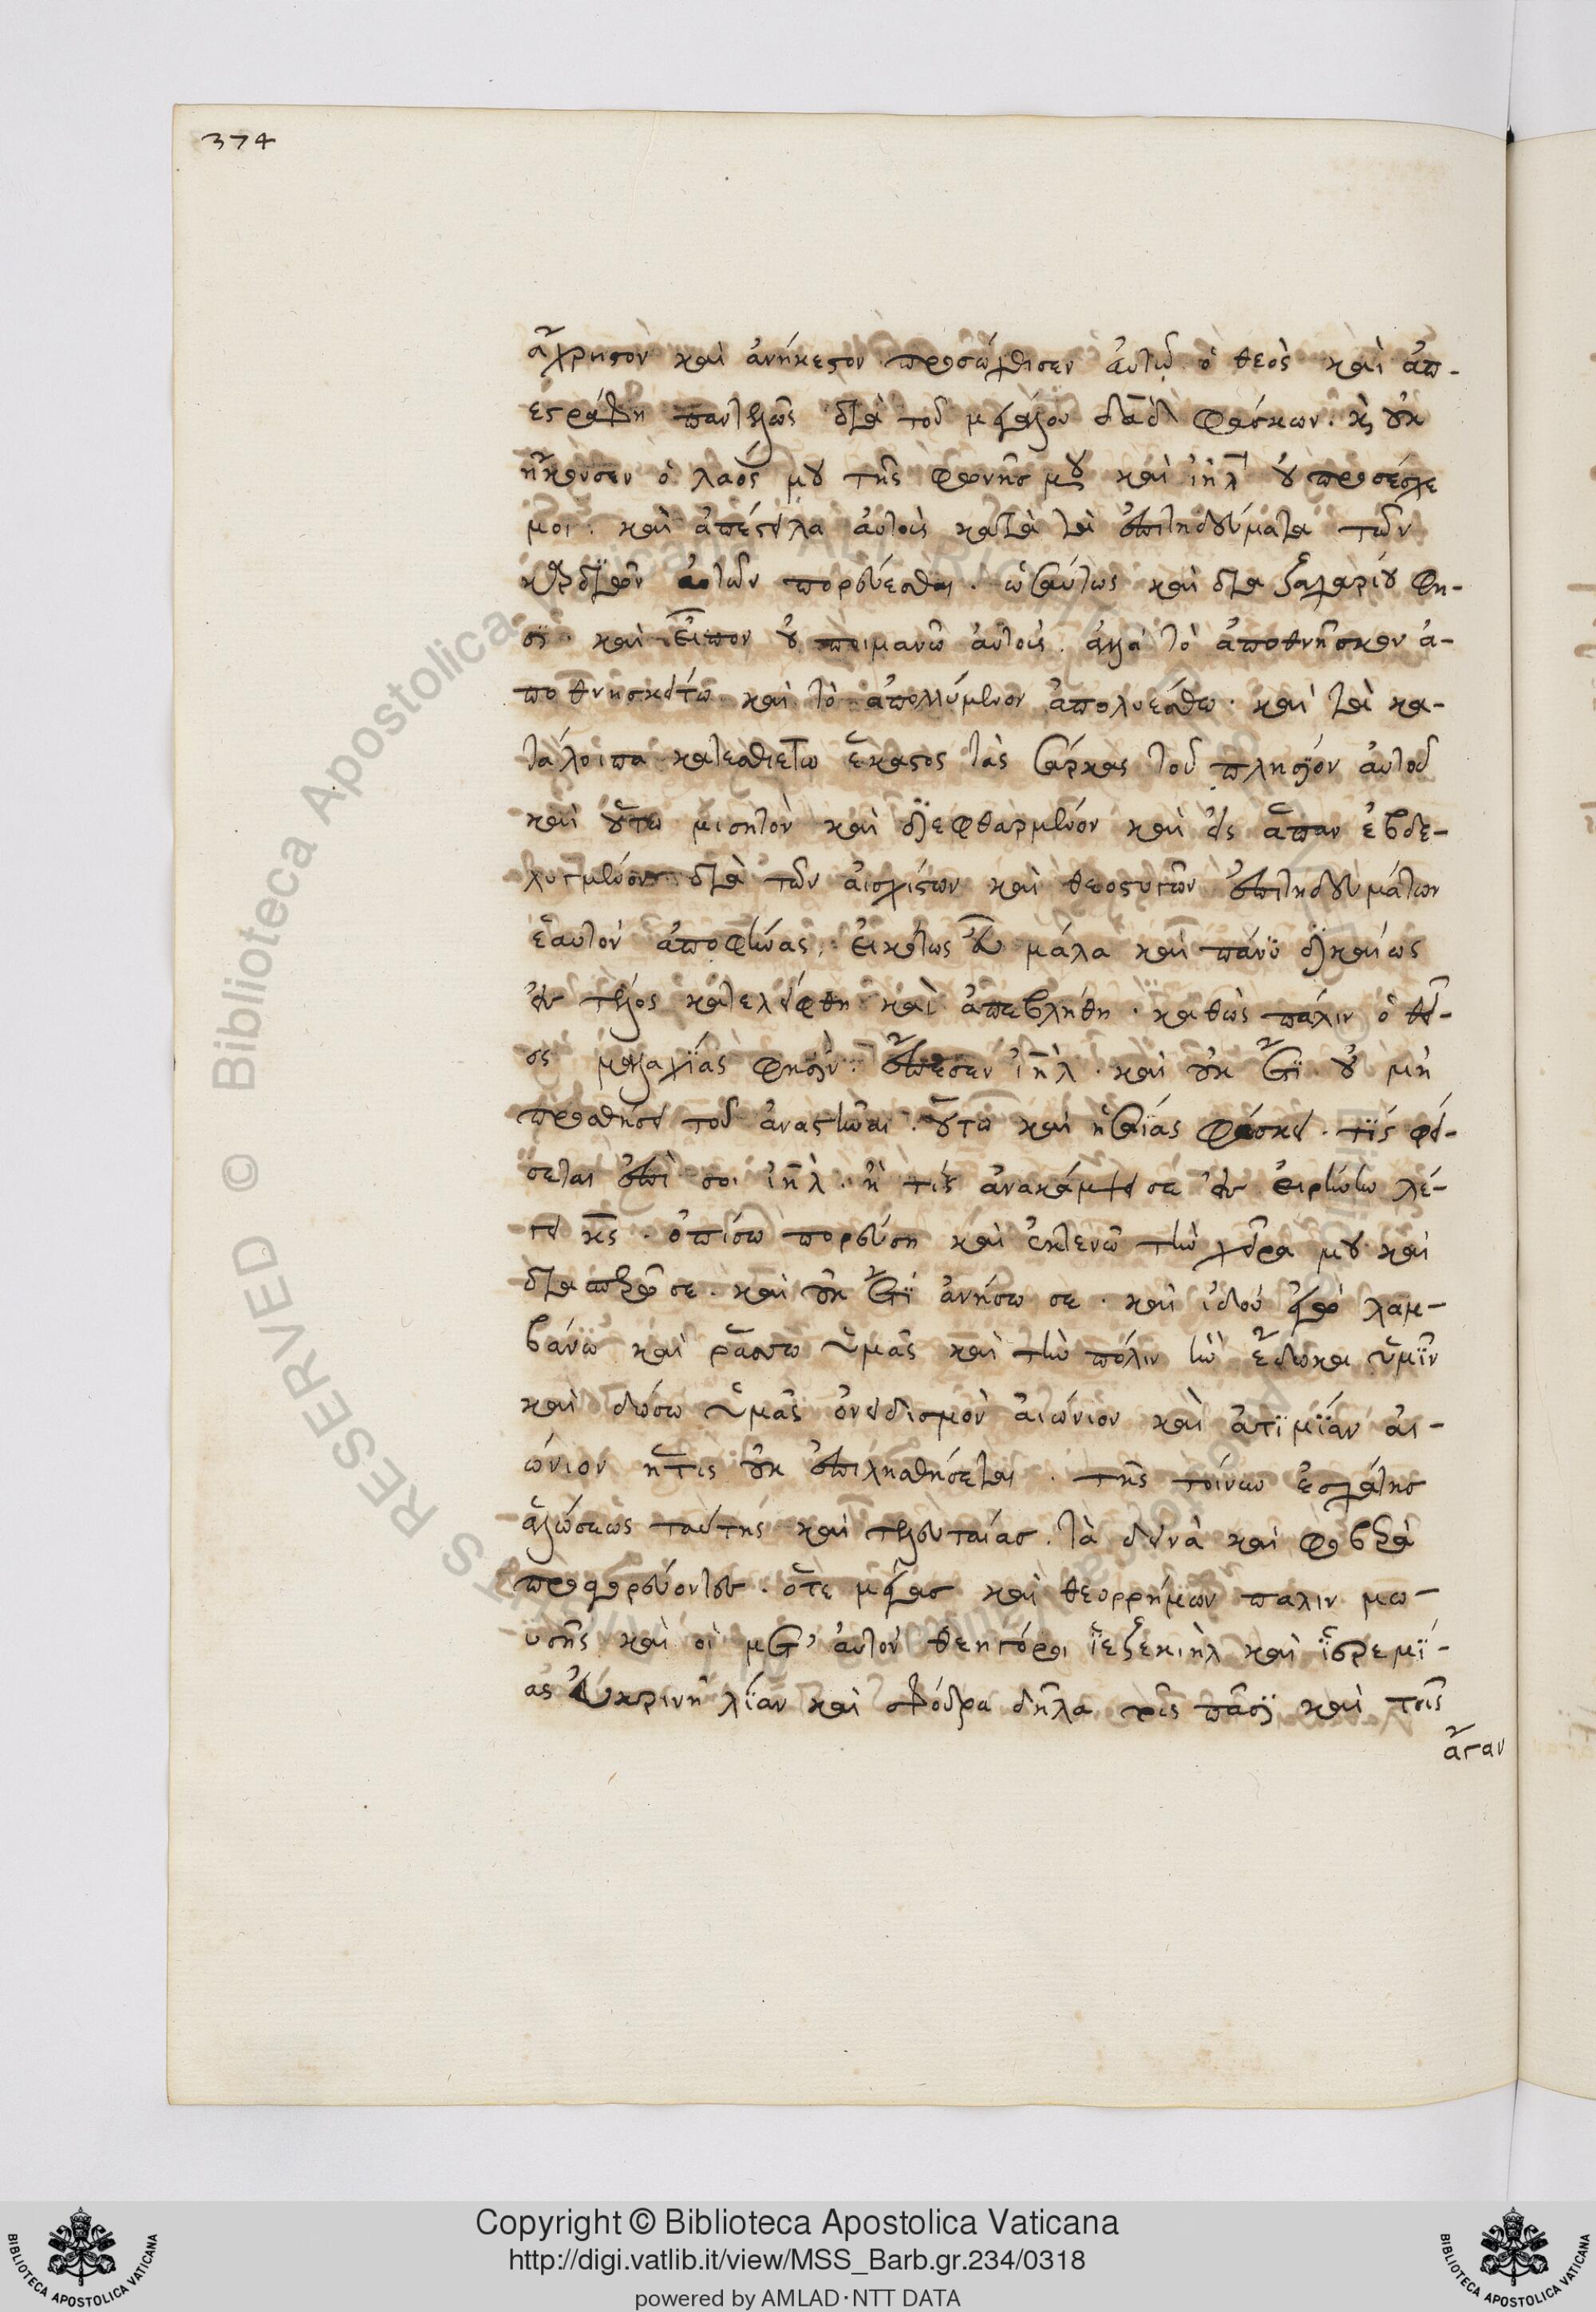 374
ἄχρηστον καὶ ἀνήκεστον προσώχθισεν ἀυτῷ ὁ θεὸς καὶ ἀπ-
εστράφη παντελῶς διὰ τοῦ μεγάλου δᾱδ φάσκων. κ οὐκ
ἤκουσεν ὁ λαός μου τῆς φωνῆς μου καὶ ἰηλ οὐ προσέσχε
μοι. καὶ ἀπέστειλα ἀυτοὺς κατὰ τὰ ἐπιτηδεύματα τῶν
καρδιῶν ἀυτῶν πορεύεσθαι. ὡσαύτως καὶ δια ζαχαρίου φη-
σὶ. καὶ εἶπον οὐ ποιμανῶ ἀυτοὺς. ἀλλὰ τὸ ἀποθνῆσκον ἀ-
ποθνησκέτω καὶ τὸ ἀπολλύμενον ἀπολυέσθω. καὶ τὰ κα-
τάλοιπα κατεσθιέτω ἕκαστος τὰς σάρκας τοῦ πλησίον ἀυτοῦ
καὶ οὕτω μισητὸν καὶ διεφθαρμένον καὶ εἰς ἅπαν ἐβδε-
λυγμένον διὰ τῶν ἀισχίστων καὶ θεοστυγῶν ἐπιτηδευμάτων
ἑαυτὸν ἀποφήνας. ἐικότως εὖ μάλα καὶ πάνϋ δικαίως
εἰς τέλος κατελείφθη καὶ ἀπεβλήθη. καθὼς πάλιν ὁ θεῖ-
ος μαλαχίας φησὶν. ἔπεσεν ἰηλ. καὶ οὐκ ἔτι οὐ μὴ
προσθήσει τοῦ ἀναστῆναι. οὕτω καὶ ἡσαΐας φάσκει. τίς φεί-
σεται ἐπὶ σοι ἰηλ. ἢ τίς ἀνακάμψει σε εἰς ἐιρήνην λέ-
γει κς. ὀπίσω πορεύση καὶ ἐκτενῶ τὴν χεῖρα μου καὶ
διαφθερῶ σε. καὶ οὐκ ἔτι ἀνήσω σε. καὶ ἰδοὺ ἐγὼ λαμ-
βάνω καὶ ράσσω ὑμᾶς καὶ τὴν πόλιν ἣν ἔδωκα ὑμῖν
καὶ δώσω ὑμᾶς ὀνειδισμὸν ἀιώνιον καὶ ἀτιμίαν ἀι-
ώνιον ἥτις οὐκ ἐπιλησθήσεται. τῆς τοίνυν ἐσχάτης
ἁλώσεως ταύτης καὶ τελευταίας. τὰ δεινὰ καὶ φοβερὰ
προαγορεύοντες. ὅτε μέγας καὶ θεορρήμων παλιν μω-
ϋσῆς καὶ οἱ μετ' ἀυτὸν θεηγόροι ἰεζεκιὴλ καὶ ἱερεμί-
ας ἐυκρινῆ λίαν καὶ σφόδρα δῆλα τοῖς πᾶσι καὶ τοῖς
ἄγαν
Copyright © Biblioteca Apostolica Vaticana
http://digi.vatlib.it/view/MSS_Barb.gr.234/0318
powered by AMLAD·NTT DATA